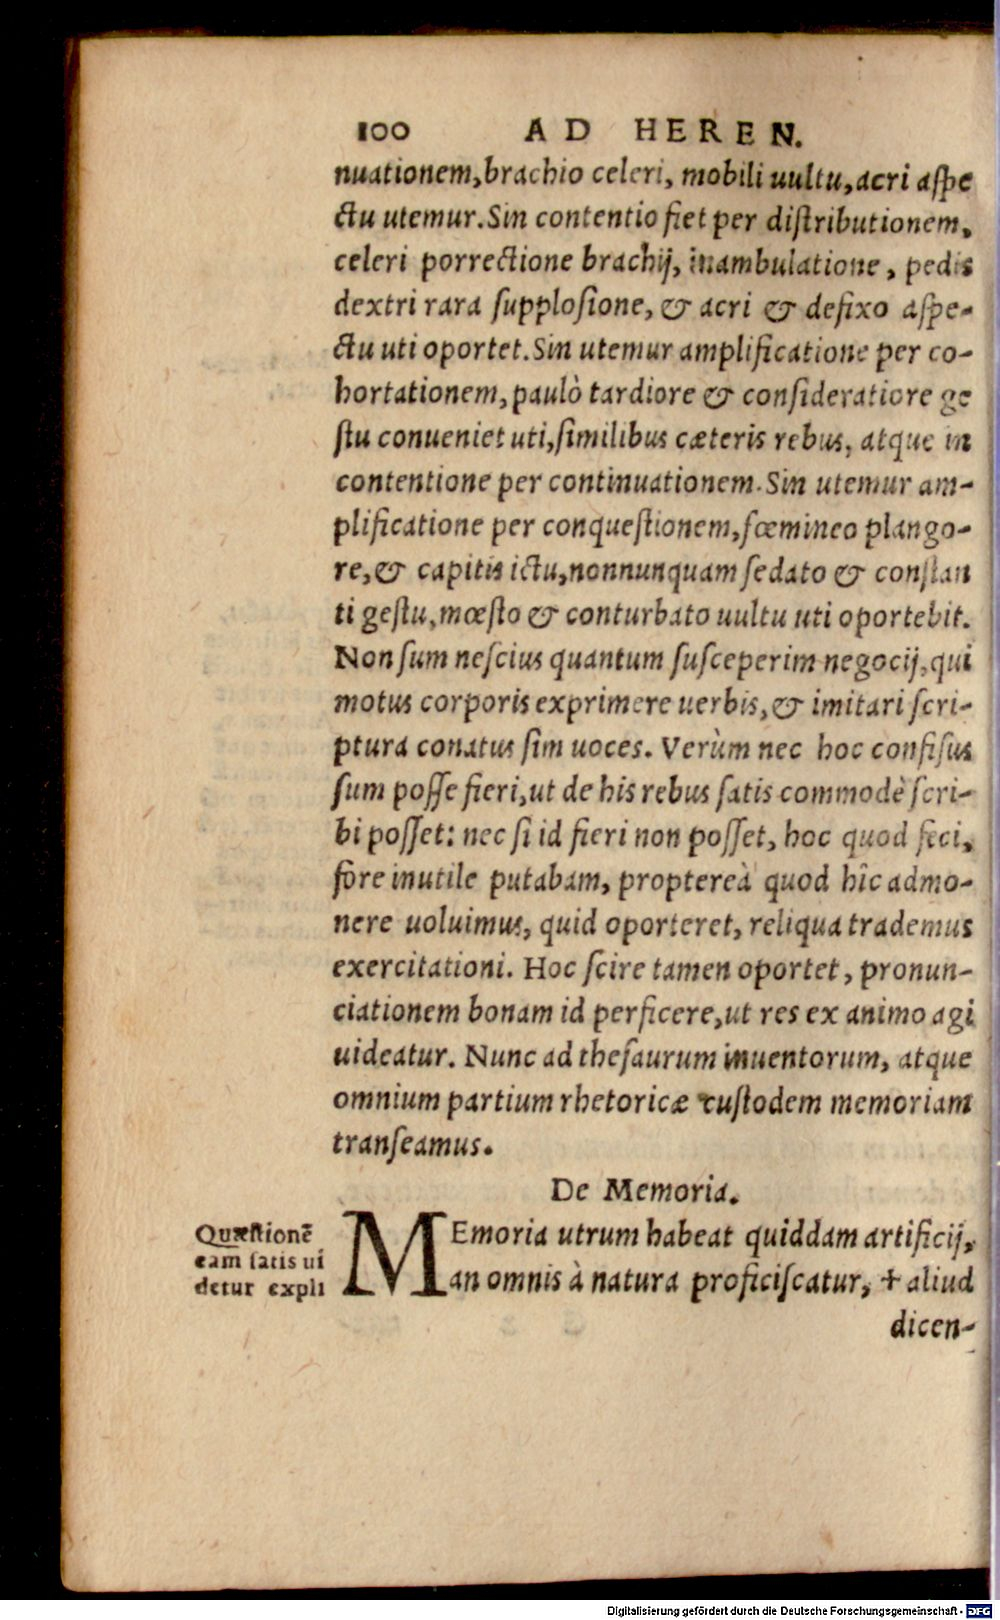 100 AD HEREN.
nuationem, brachio celeri, mobili uultu, acri aspe
ctu utemur. Sin contentio fiet per distributionem,
celeri porrectione brachij, inambulatione, pedis
dextri rara supplosione, & acri & defixo aspe-
ctu uti oportet. Sin utemur amplificatione per co-
hortationem, paulò tardiore & consideratiore ge
stu conueniet uti, similibus cæteris rebus, atque in
contentione per continuationem. Sin utemur am-
plificatione per conquestionem, fœmineo plango-
re, & capitis ictu, nonnunquam sedato & constan
ti gestu, mœsto & conturbato uultu uti oportebit.
Non sum nescius quantum susceperim negocij, qui
motus corporis exprimere uerbis, & imitari scri-
ptura conatus sim uoces. Verùm nec hoc confisus
sum posse fieri, ut de his rebus satis commodè scri-
bi posset: nec si id fieri non posset, hoc quod feci,
fore inutile putabam, proptereà quod hîc admo-
nere uoluimus, quid oporteret, reliqua trademus
exercitationi. Hoc scire tamen oportet, pronun-
ciationem bonam id perficere, ut res ex animo agi
uideatur. Nunc ad thesaurum inuentorum, atque
omnium partium rhetoricæ custodem memoriam
transeamus.
De Memoria.
MEmoria utrum habeat quiddam artificij,
an omnis à natura proficiscatur, + aliud
dicen-
Quæstionē
eam satis ui
detur expli
Digitalisierung gefördert durch die Deutsche Forschungsgemeinschaft - DFG